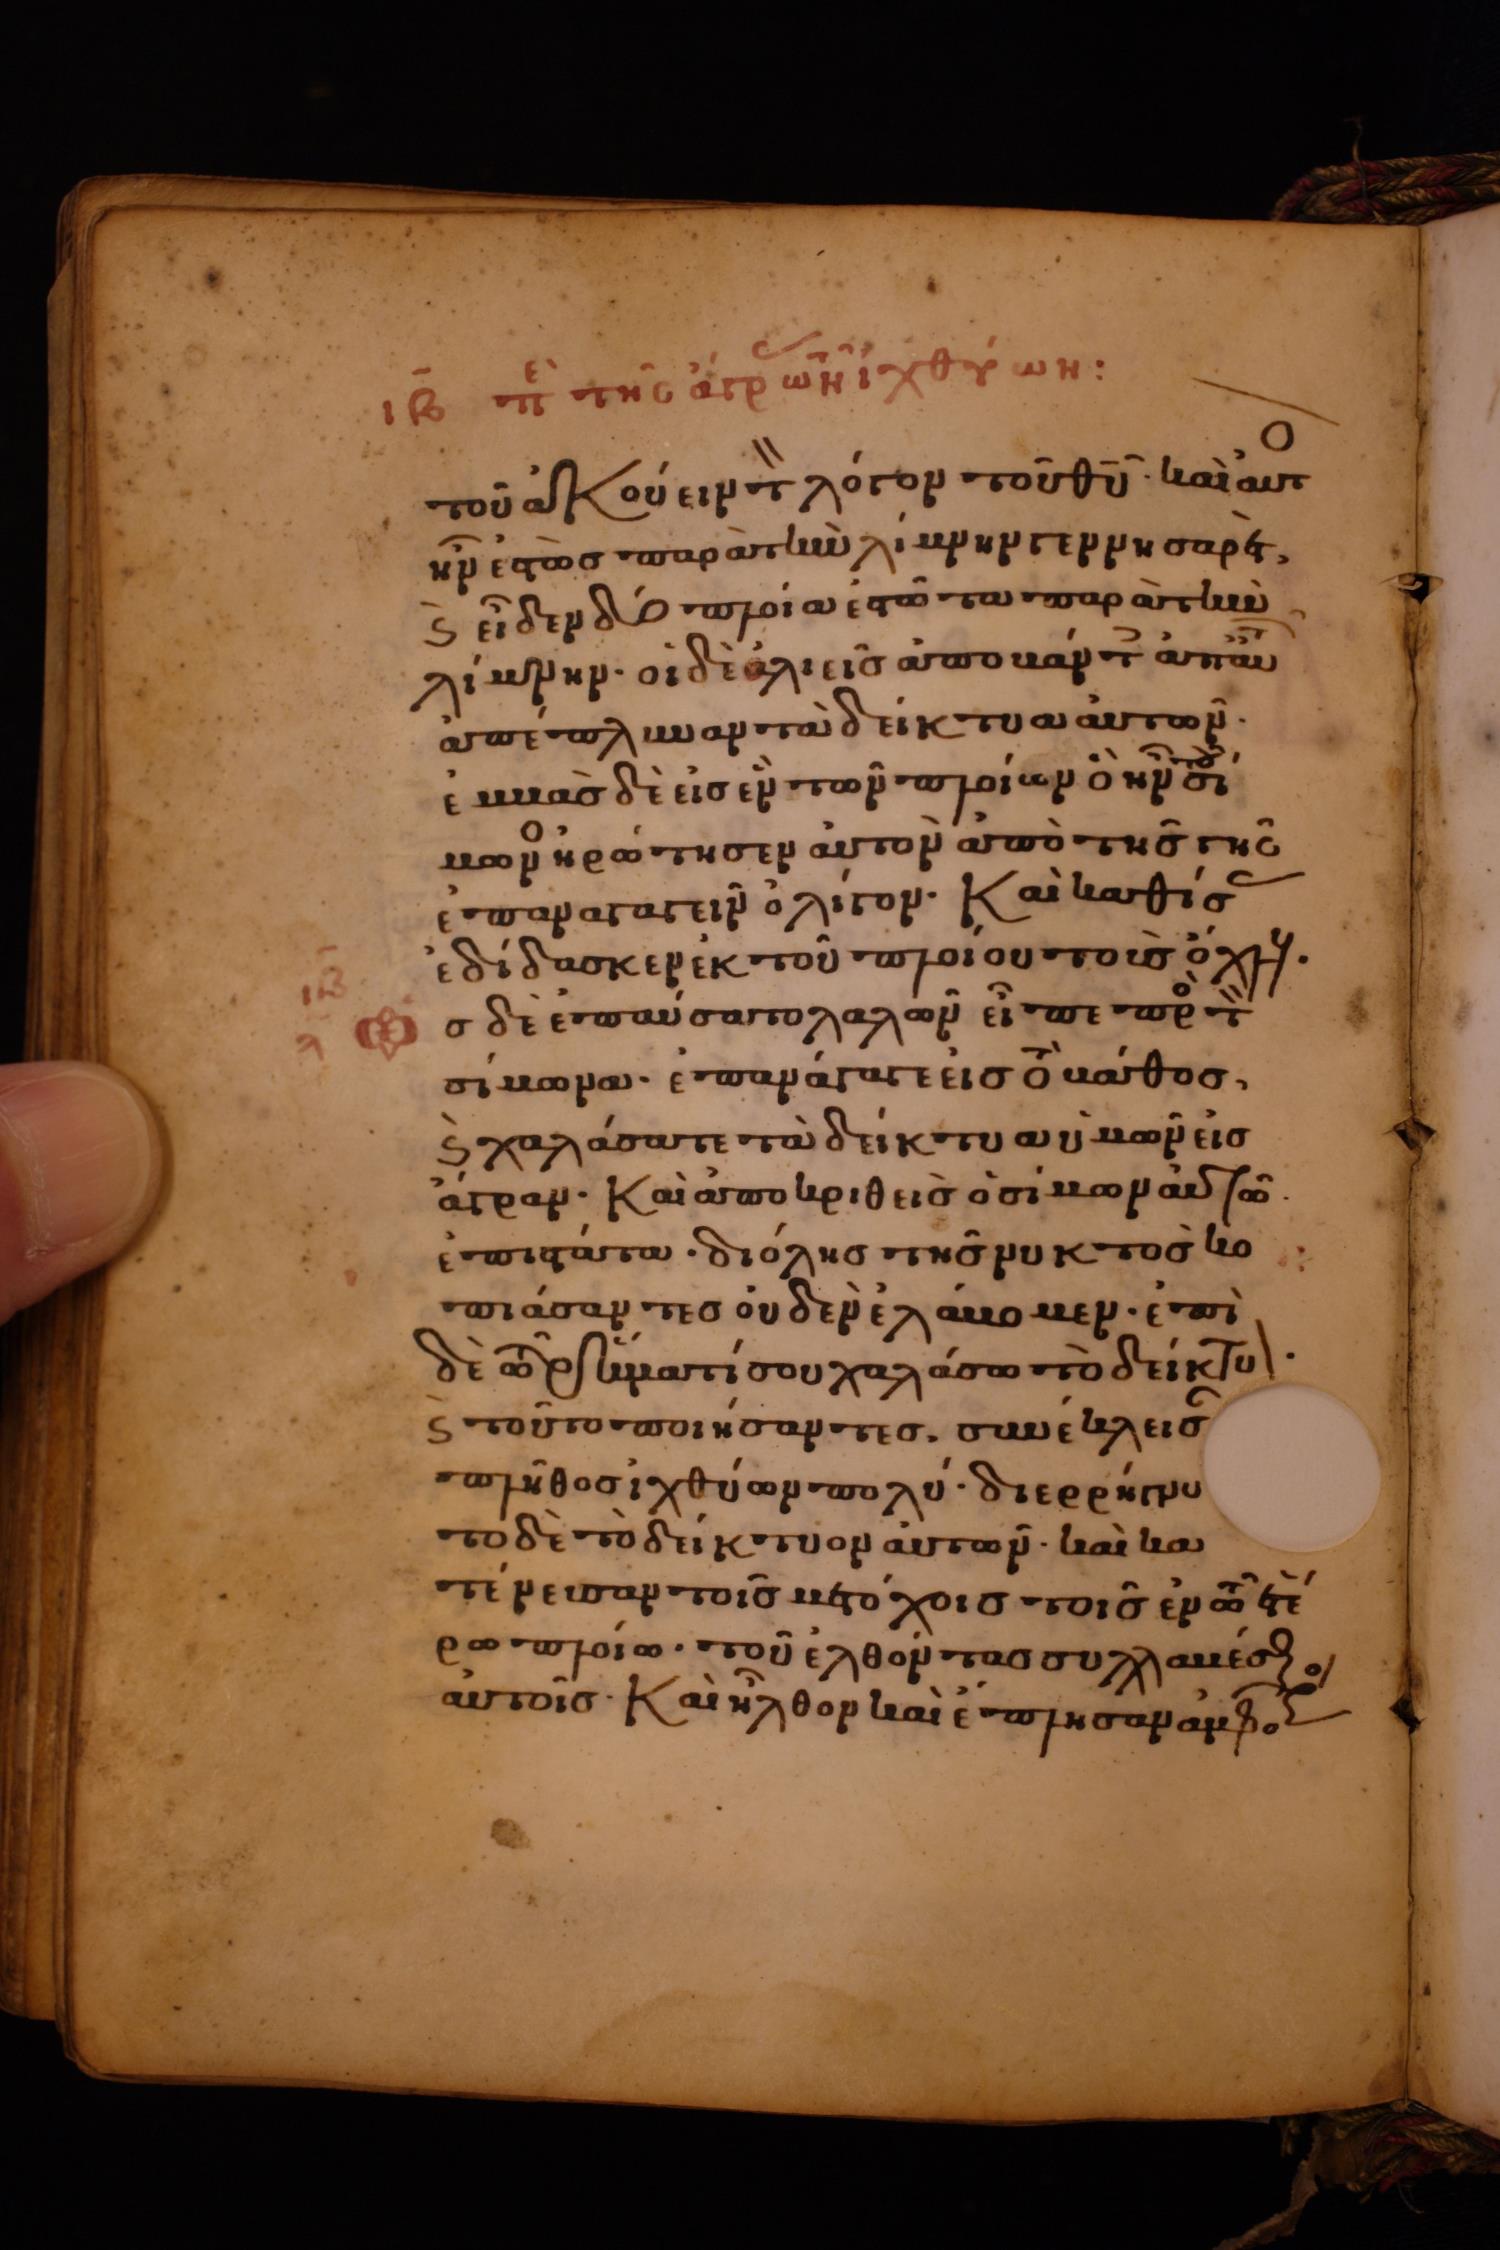 ιβ πε τῆς ἄγρ τῶν ἰχθύων:
τοῦ ἀκούειν τὸν λόγον τοῦ θυ̅. καὶ αυτο
ἦν ἑστὼς παρὰ τὴν λίμνην γεννησαρὲτ,
ϛ εἶδεν δύο πλοία ἑστῶτα παρὰ τὴν
λίμνην. οἱ δὲ ἁλιεῖς ἀποβάντ ἀπ αὐ
ἀπέπλυναν τὰ δείκτυα αὐτῶν.
ἐμβὰς δὲ εἰς ἓν τῶν πλοίων ὃ ἦν τοῦ σί
μωνο ἠρώτησεν αὐτὸν ἀπὸ τῆς γῆς
ἐπαναγαγεῖν ὀλίγον. Καὶ καθίσ
ἐδίδασκεν ἐκ τοῦ πλοίου τοὺς ὄχλου.
ιβ
λ σ δὲ ἐπαύσατο λαλῶν εἶπε πρὸ τὸν
σίμωνα. ἐπανάγαγε εἰς τὸ βάθος,
ϛ χαλάσατε τὰ δείκτυα ὑμῶν εἰς
ἄγραν. Καὶ ἀποκριθεὶς ὁ σίμων αὐτῶ.
ἐπιστάτα. διόλης τῆς νυκτὸς κο
πιάσαντες οὐδὲν ἐλάβομεν. ἐπὶ
δὲ τῶ ρήματί σου χαλάσω τὸ δείκτυ.
ϛ τοῦτο ποιήσαντες, συνέκλεισ
πλῆθος ἰχθύων πολύ. διερρήγνυ
το δὲ τὸ δείκτυον αὐτῶν. καὶ κα
τένευσαν τοῖς μετόχοις τοῖς ἐν τῶ ἑτέ
ρω πλοίω. τοῦ ἐλθόντας συλλαβέσθ
αὐτοῖς. Καὶ ἦλθον καὶ ἔπλησαν ἀμφο